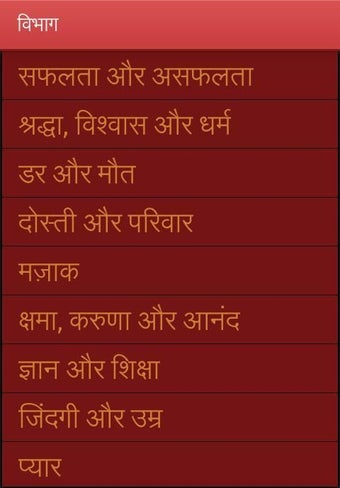 विभाग
सफलता और असफलता
श्रद्धा, विश्वास और धर्म
डर और मौत
दोस्ती और परिवार
मज़ाक
क्षमा, करुणा और आनंद
ज्ञान और शिक्षा
जिंदगी और उम्र
प्यार